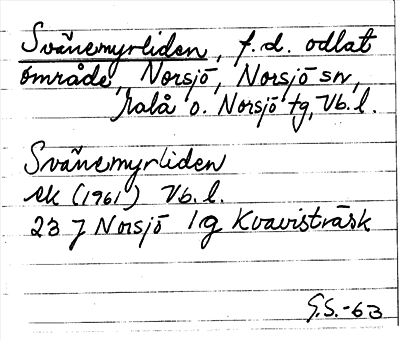 Svänemyrliden, f.d. odlat
område, Norsjö, Norsjö sn,
Malå o. Norsjö tg, Vb.l.
Svänemyrliden
ek (1961) Vb.l.
23 J Norsjö 1g Kvavisträsk
G.S.-63